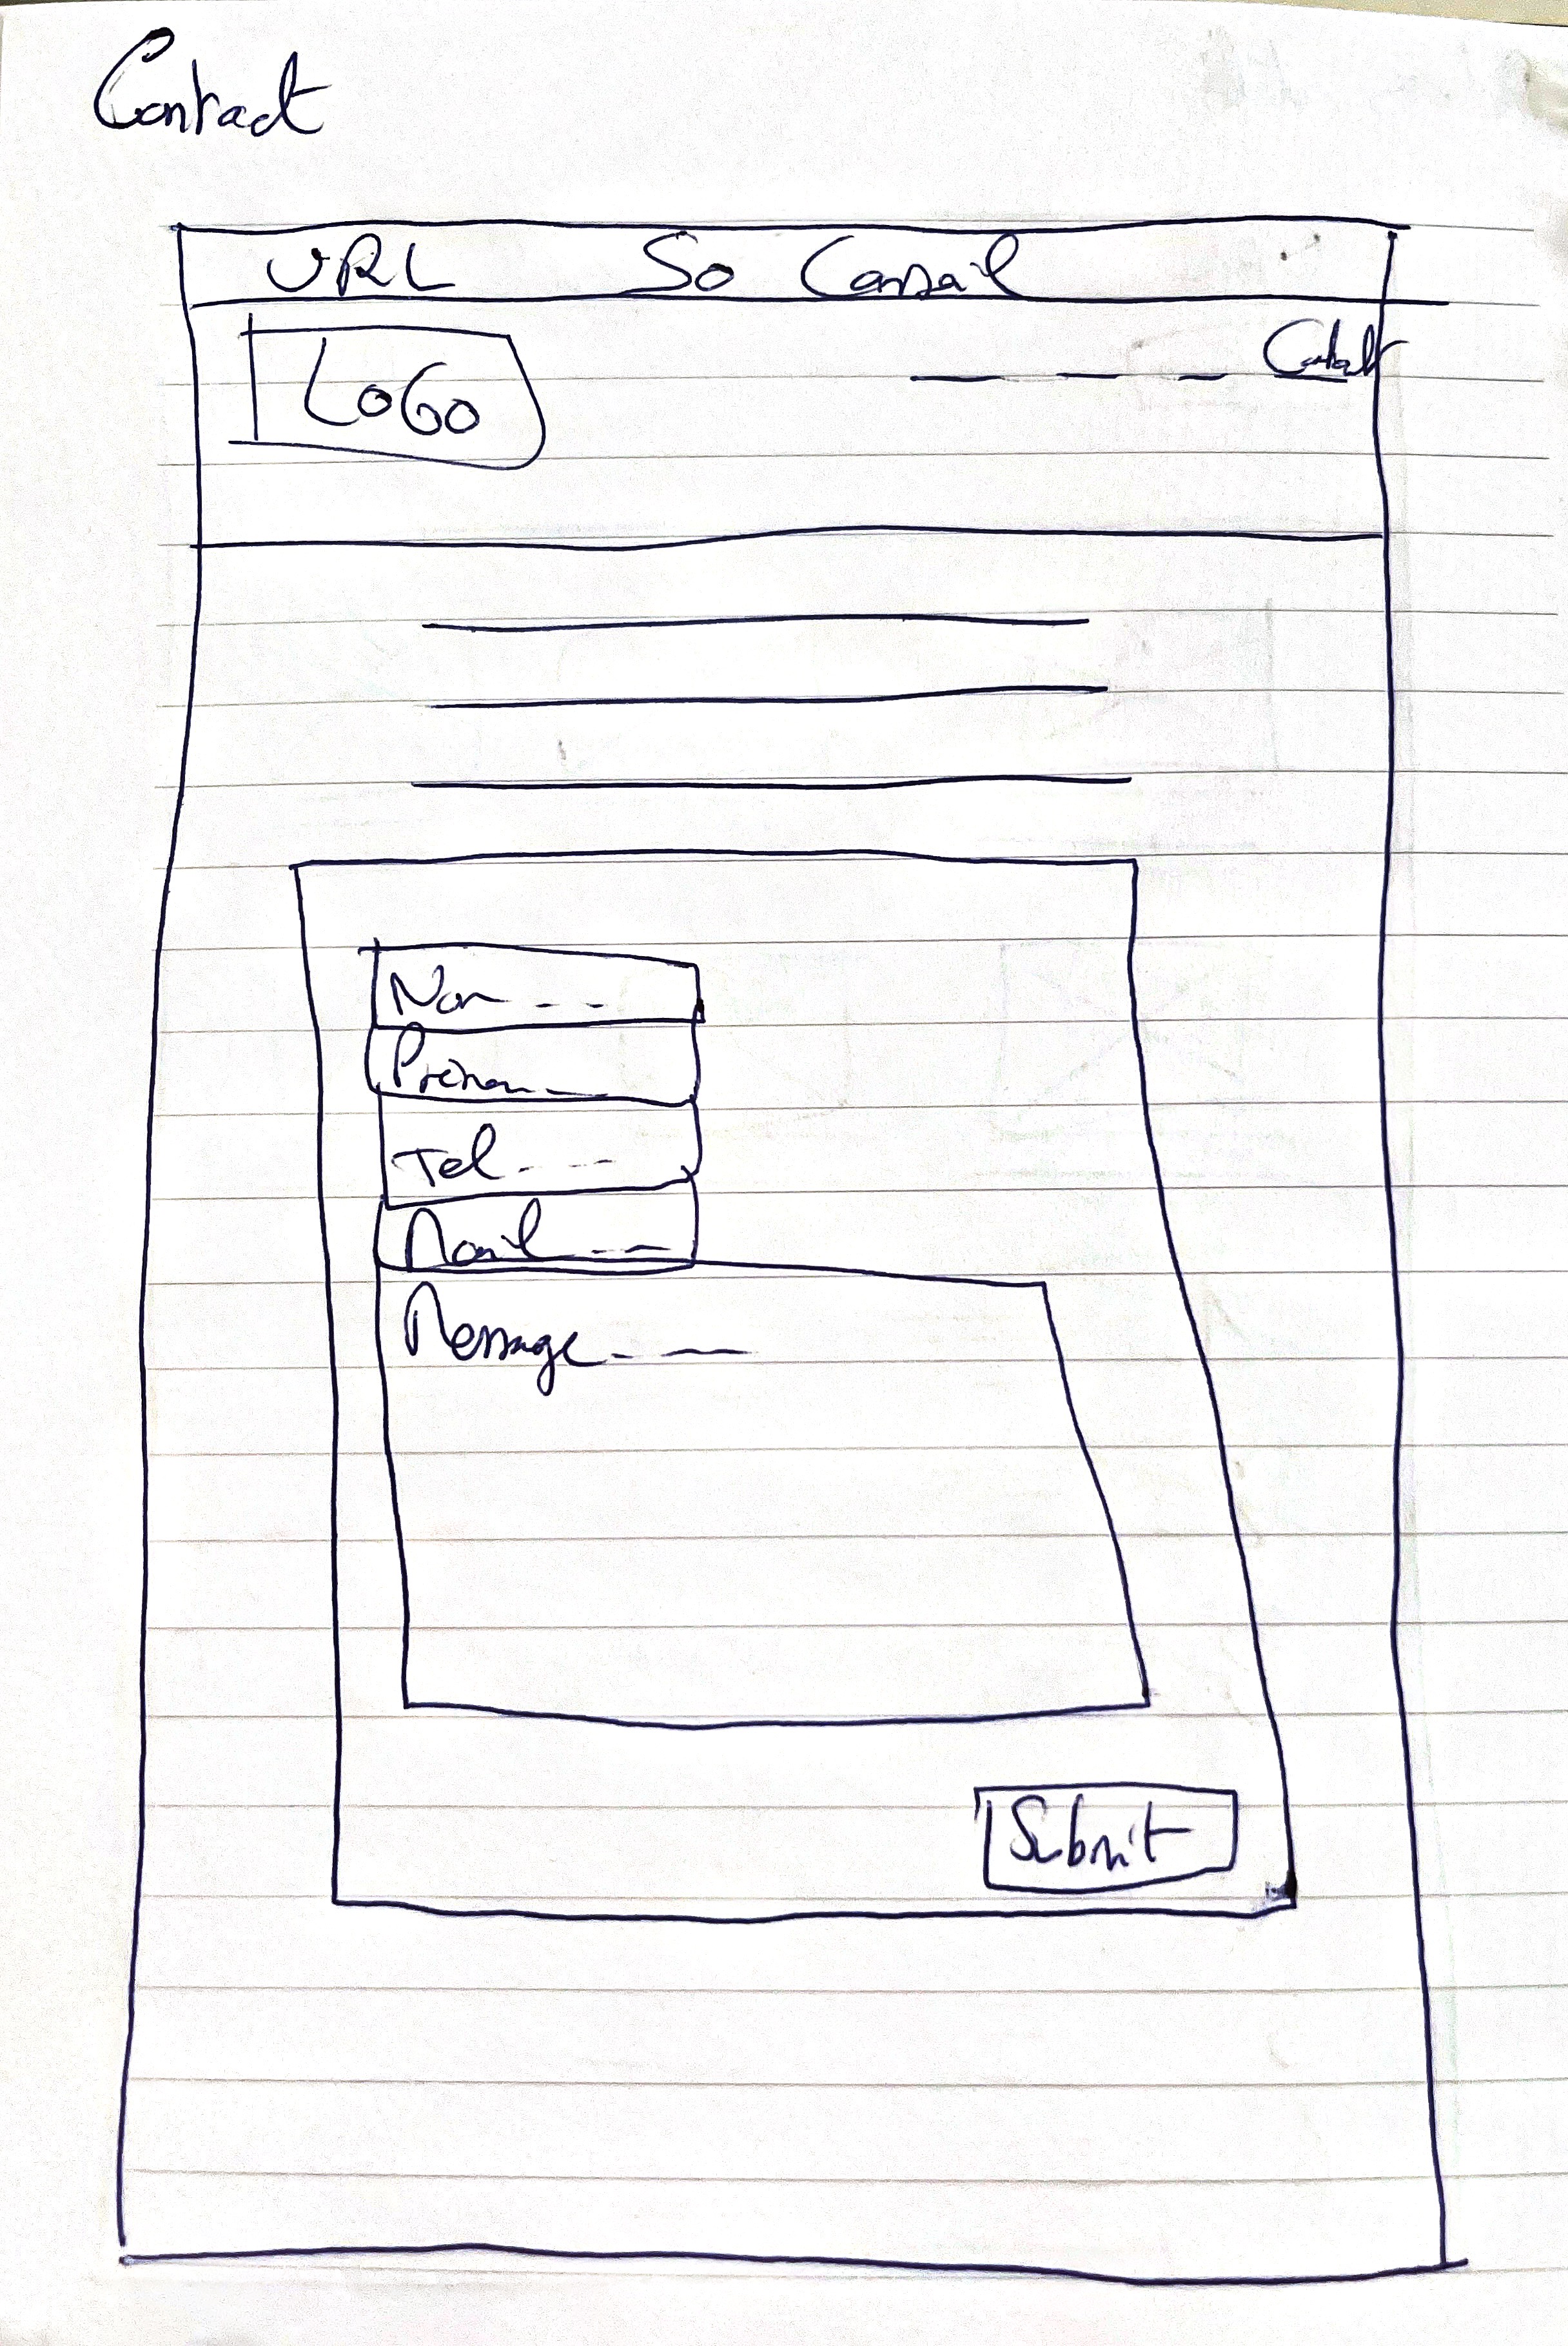 Contact
URL So Conseil
LOGO
Contact
Nom
Prénom
Tel
Mail
Message
Submit